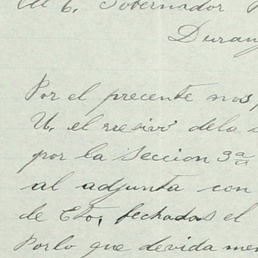 Al C. Gobernador
Duran
Por el precente nos
U. el resivo dela
por la Seccion 3a
al adjunta con
de Eto, fechadas el
Porlo que devida men